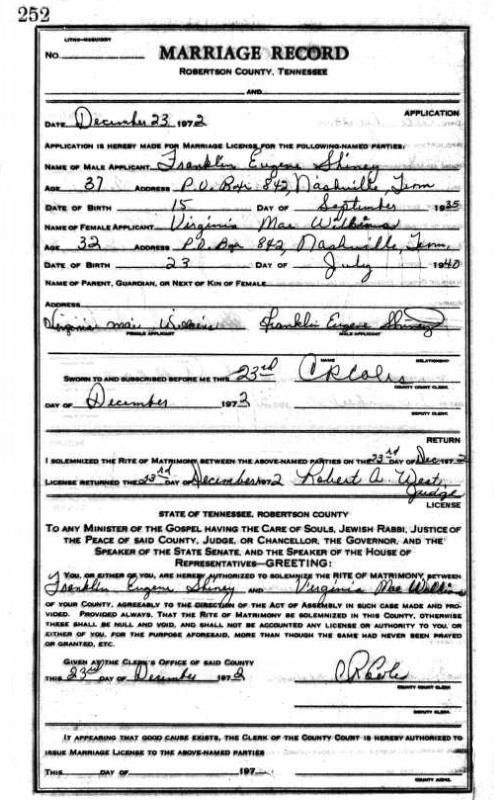 252
LITHO-MARSHALL
No.
MARRIAGE RECORD
ROBERTSON COUNTY, TENNESSEE
AND
APPLICATION
DATE December 23 1972
APPLICATION IS HEREBY MADE FOR MARRIAGE LICENSE FOR THE FOLLOWING-NAMED PARTIES:
NAME OF MALE APPLICANT Franklin Eugene Shiney
AGE 37 ADDRESS P.O. Box 842, Nashville, Tenn
DATE OF BIRTH 15 DAY OF September 1935
NAME OF FEMALE APPLICANT Virginia Mae Wilkins
AGE 32 ADDRESS P.O. Box 842, Nashville, Tenn.
DATE OF BIRTH 23 DAY OF July 1940
NAME OF PARENT, GUARDIAN, OR NEXT OF KIN OF FEMALE
ADDRESS
Virginia Mae Wilkins Franklin Eugene Shiney
FEMALE APPLICANT MALE APPLICANT
NAME RELATIONSHIP
SWORN TO AND SUBSCRIBED BEFORE ME THIS 23rd CR Coles
COUNTY COURT CLERK
DAY OF December 1972
DEPUTY CLERK
RETURN
I SOLEMNIZED THE RITE OF MATRIMONY BETWEEN THE ABOVE-NAMED PARTIES ON THE 23rd DAY OF Dec 1972
LICENSE RETURNED THE 23rd DAY OF December 1972 Robert A. West,
Judge
LICENSE
STATE OF TENNESSEE, ROBERTSON COUNTY
TO ANY MINISTER OF THE GOSPEL HAVING THE CARE OF SOULS, JEWISH RABBI, JUSTICE OF
THE PEACE OF SAID COUNTY, JUDGE, OR CHANCELLOR, THE GOVERNOR, AND THE
SPEAKER OF THE STATE SENATE, AND THE SPEAKER OF THE HOUSE OF
REPRESENTATIVES—GREETING:
YOU, OR EITHER OF YOU, ARE HEREBY AUTHORIZED TO SOLEMNIZE THE RITE OF MATRIMONY BETWEEN
Franklin Eugene Shiney AND Virginia Mae Wilkins
OF YOUR COUNTY, AGREEABLY TO THE DIRECTION OF THE ACT OF ASSEMBLY IN SUCH CASE MADE AND PRO-
VIDED. PROVIDED ALWAYS, THAT THE RITE OF MATRIMONY BE SOLEMNIZED IN THIS COUNTY, OTHERWISE
THESE SHALL BE NULL AND VOID, AND SHALL NOT BE ACCOUNTED ANY LICENSE OR AUTHORITY TO YOU OR
EITHER OF YOU, FOR THE PURPOSE AFORESAID, MORE THAN THOUGH THE SAME HAD NEVER BEEN PRAYED
OR GRANTED, ETC.
GIVEN AT THE CLERK'S OFFICE OF SAID COUNTY
THIS 23rd DAY OF December 1972 CR Coles
COUNTY COURT CLERK
DEPUTY CLERK
IT APPEARING THAT GOOD CAUSE EXISTS, THE CLERK OF THE COUNTY COURT IS HEREBY AUTHORIZED TO
ISSUE MARRIAGE LICENSE TO THE ABOVE-NAMED PARTIES
THIS DAY OF 197
COUNTY JUDGE